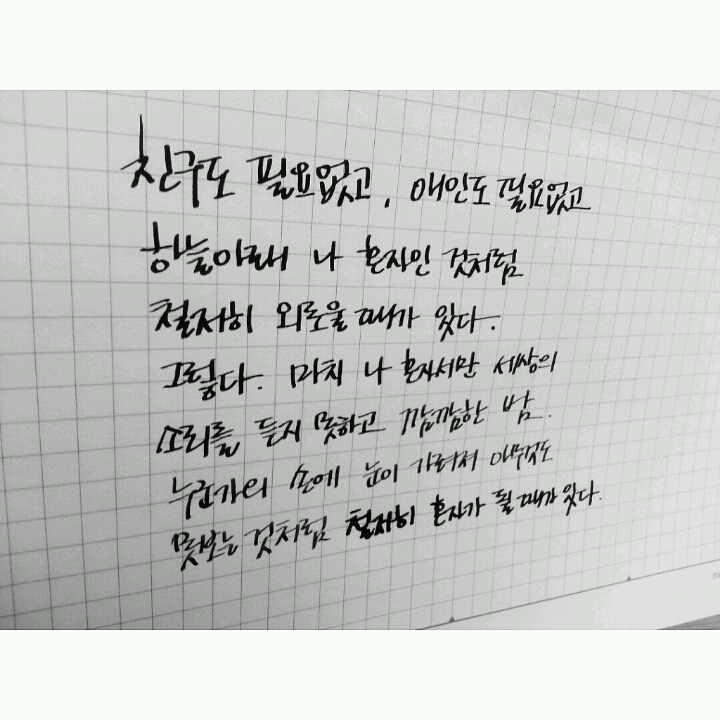 친구도 필요없고, 애인도 필요없고
하늘아래 나 혼자인 것처럼
철저히 외로울때가 있다.
그렇다. 마치 나 혼자서만 세상의
소리를 듣지 못하고 깜깜한 밤.
누군가의 손에 눈이 가려져 아무것도
못보는 것처럼 철저히 혼자가 될 때가 있다.